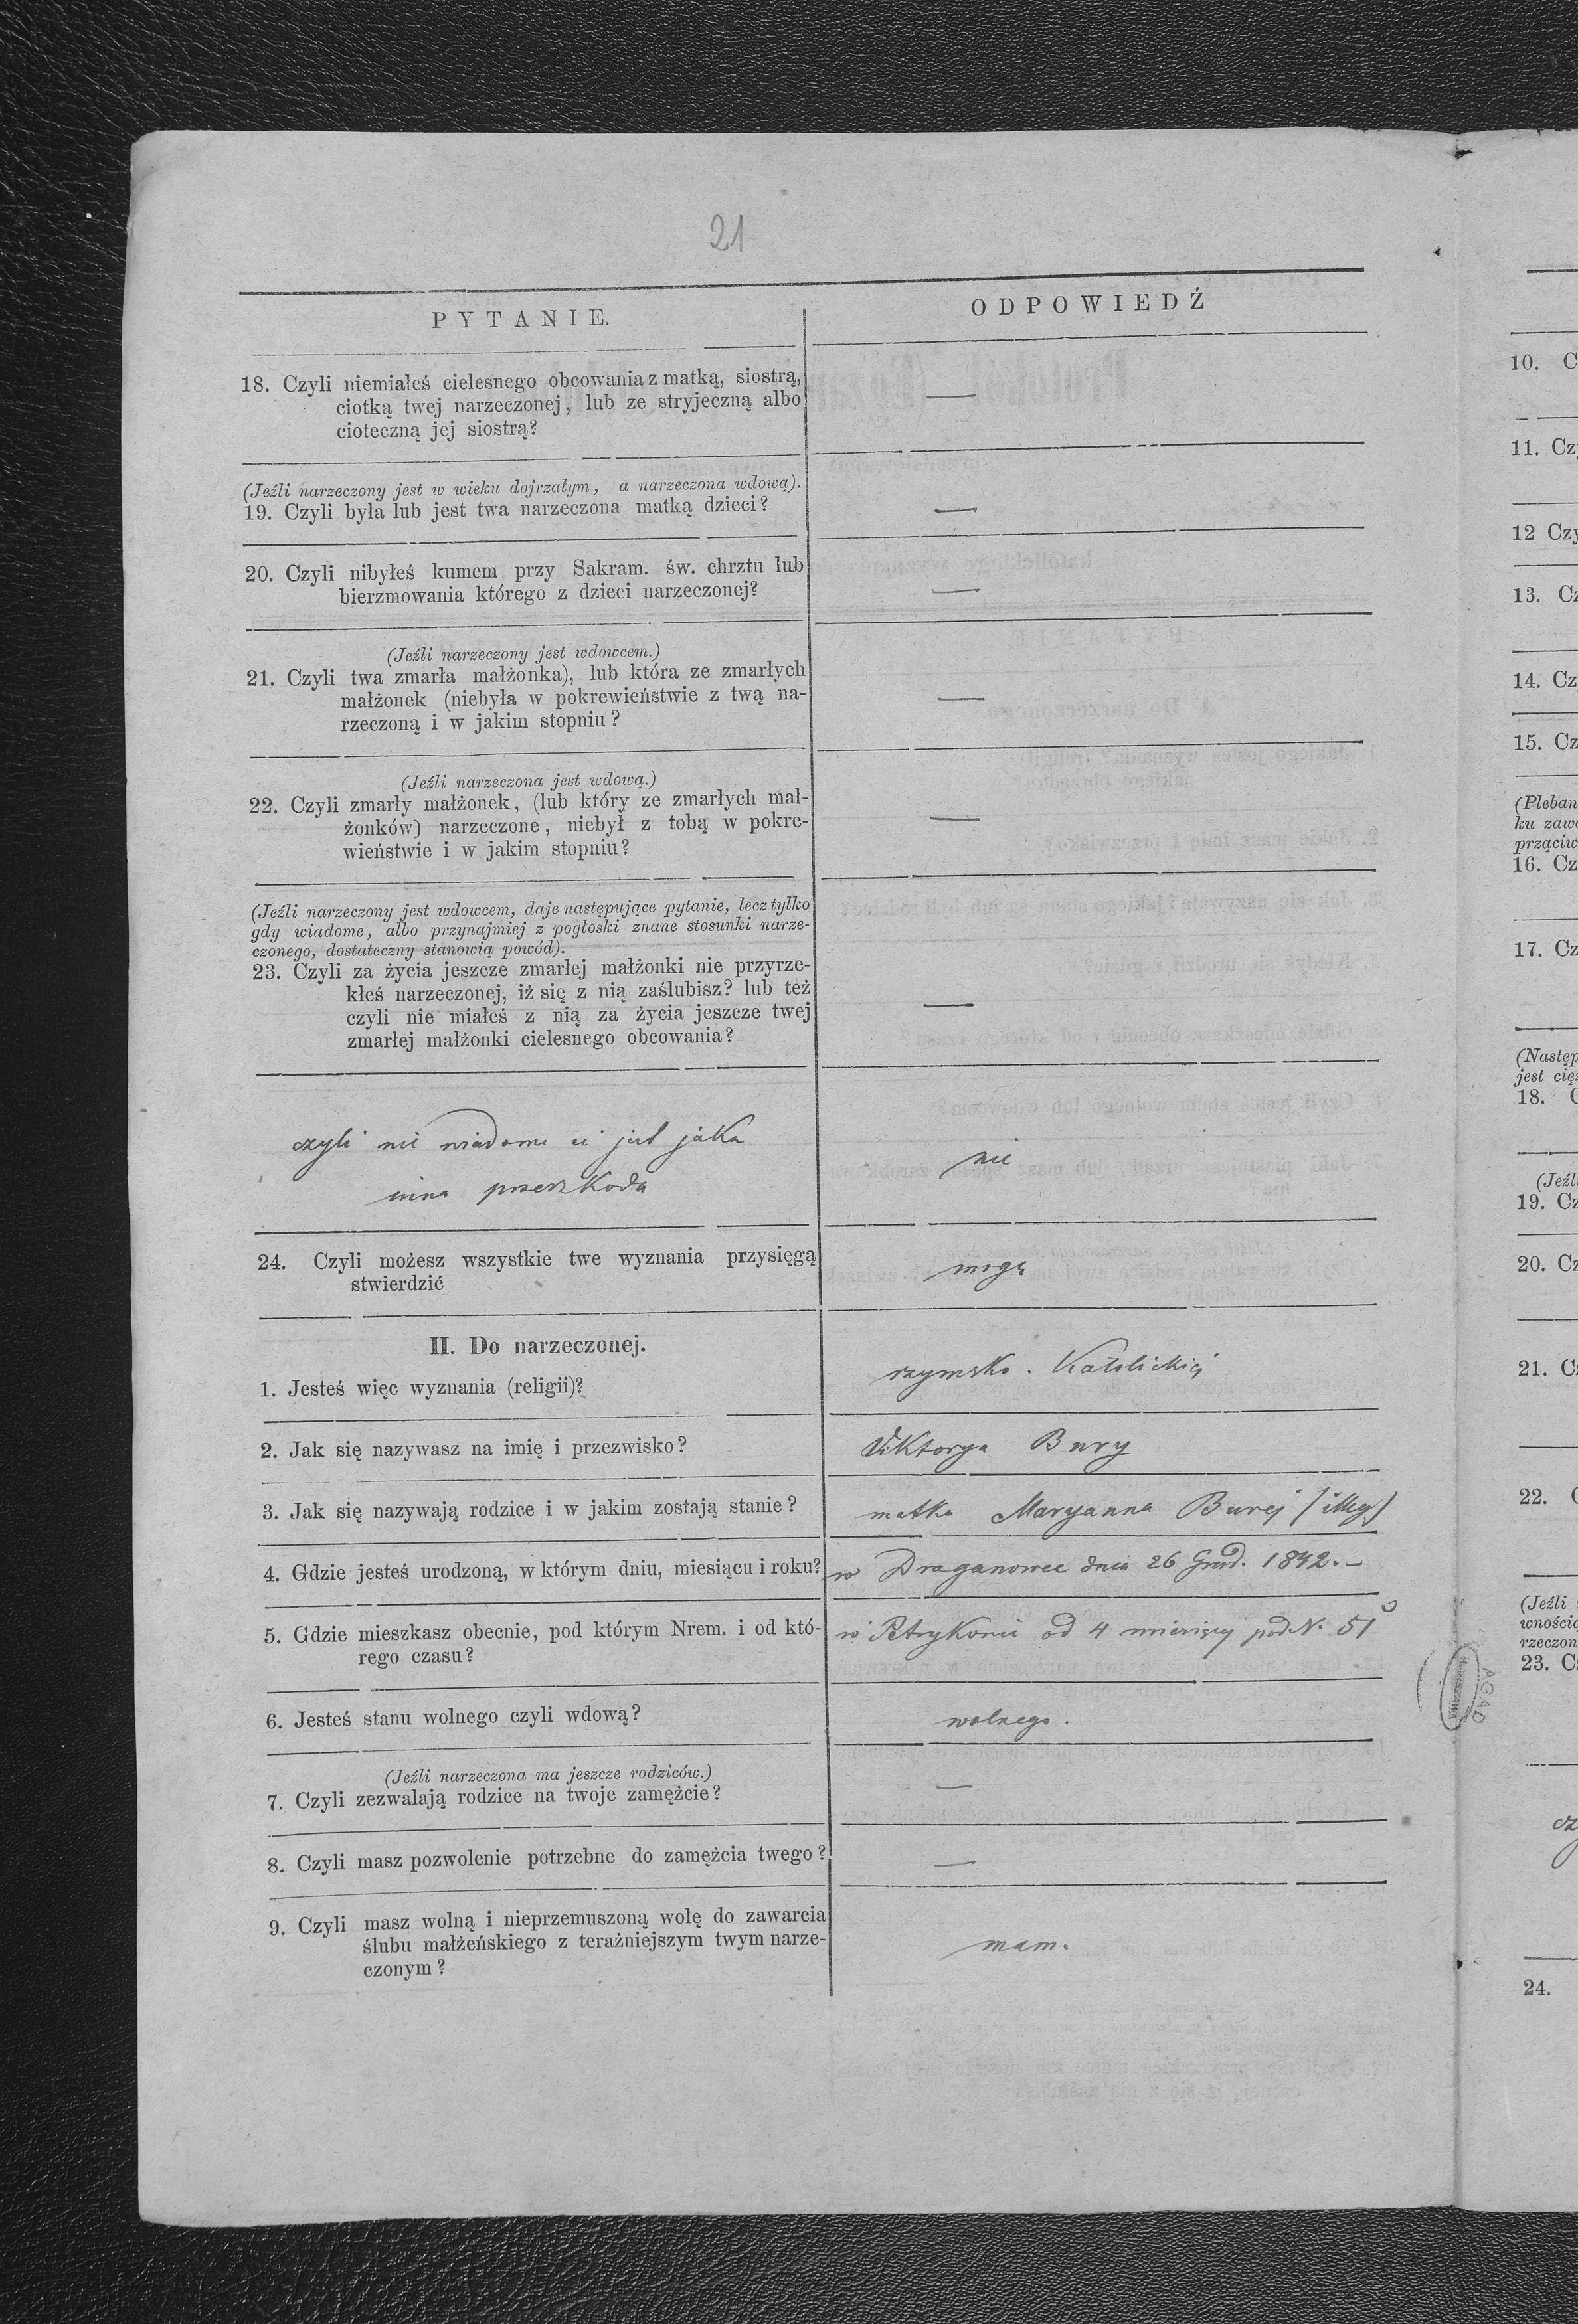 21
PYTANIE.
ODPOWIEDŹ
18. Czyli niemiałeś cielesnego obcowania z matką, siostrą,
ciotką twej narzeczonej, lub ze stryjeczną albo
cioteczną jej siostrą?
—
(Jeźli narzeczony jest w wieku dojrzałym, a narzeczona wdową).
19. Czyli była lub jest twa narzeczona matką dzieci?
—
20. Czyli nibyłeś kumem przy Sakram. św. chrztu lub
bierzmowania którego z dzieci narzeczonej?
—
(Jeźli narzeczony jest wdowcem.)
21. Czyli twa zmarła małżonka), lub która ze zmarłych
małżonek (niebyła w pokrewieństwie z twą na-
rzeczoną i w jakim stopniu?
—
(Jeźli narzeczona jest wdową.)
22. Czyli zmarły małżonek, (lub który ze zmarłych mał-
żonków) narzeczone, niebył z tobą w pokre-
wieństwie i w jakim stopniu?
—
(Jeźli narzeczony jest wdowcem, daje następujące pytanie, lecz tylko
gdy wiadome, albo przynajmiej z pogłoski znane stosunki narze-
czonego, dostateczny stanowią powód).
23. Czyli za życia jeszcze zmarłej małżonki nie przyrze-
kłeś narzeczonej, iż się z nią zaślubisz? lub też
czyli nie miałeś z nią za życia jeszcze twej
zmarłej małżonki cielesnego obcowania?
—
czyli nie wiadome ci jest jaka
inna przeszkoda
nie
24. Czyli możesz wszystkie twe wyznania przysięgą
stwierdzić
mogę
II. Do narzeczonej.
1. Jesteś więc wyznania (religii)?
rzymsko. Katolickiej
2. Jak się nazywasz na imię i przezwisko?
Wiktorya Bury
3. Jak się nazywają rodzice i w jakim zostają stanie?
matka Maryanna Burej /illeg/
4. Gdzie jesteś urodzoną, w którym dniu, miesiącu i roku?
w Draganowce dnia 26 Grud. 1842.—
5. Gdzie mieszkasz obecnie, pod którym Nrem. i od któ-
rego czasu?
w Petrykowie od 4 miesięcy pod N. 51
6. Jesteś stanu wolnego czyli wdową?
wolnego.
(Jeźli narzeczona ma jeszcze rodziców.)
7. Czyli zezwalają rodzice na twoje zamężcie?
—
8. Czyli masz pozwolenie potrzebne do zamężcia twego?
—
9. Czyli masz wolną i nieprzemuszoną wolę do zawarcia
ślubu małżeńskiego z teraźniejszym twym narze-
czonym?
mam.
10. C
11. Czy
12 Czy
13. Cz
14. Cz
15. Cz
(Pleban
ku zawo
prząciw
16. Cz
17. Cz
(Następ
jest cięż
18. C
(Jeźl
19. Cz
20. Cz
21. Cz
22. C
(Jeźli
wnością
rzeczon
23. C
AGAD
WARSZAWA
cz
24.